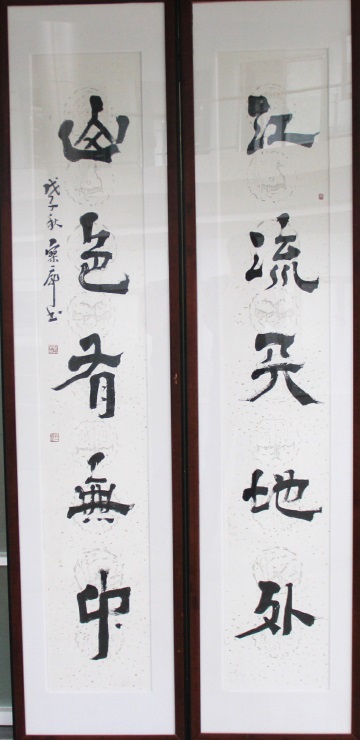 江流天地外
山色有無中
戊子秋 書